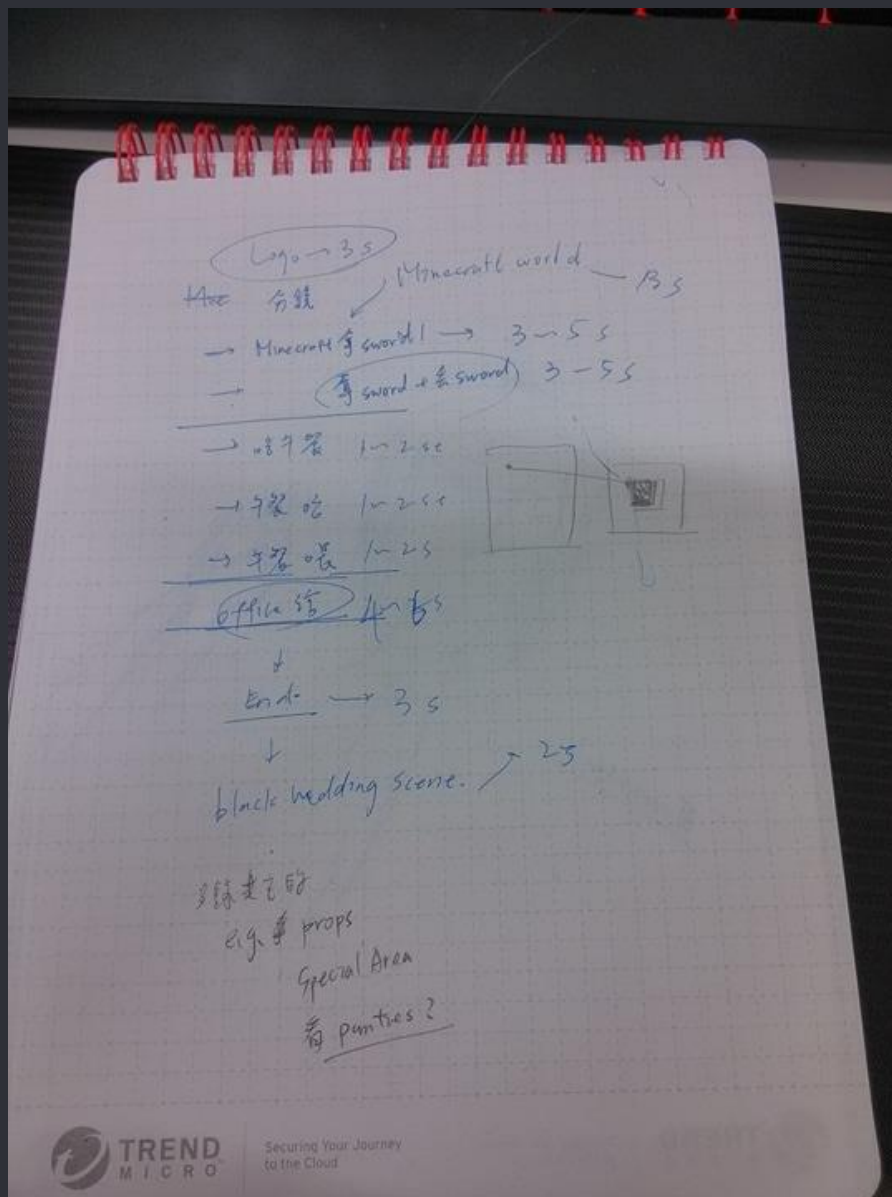 Logo ~ 3s
Minecraft world — 13s
分鏡
→ Minecraft 拿 sword! → 3~5s
→ 拿 sword + 丟 sword 3-5s
→ 午餐 1~2se
→ 午餐 吃 1~2se
→ 午餐 喂 1~2s
office 4~
↓
End. → 3s
↓
black wedding scene. → 2s
e.g. props
Special Area
看 panties?
TREND MICRO
Securing Your Journey to the Cloud